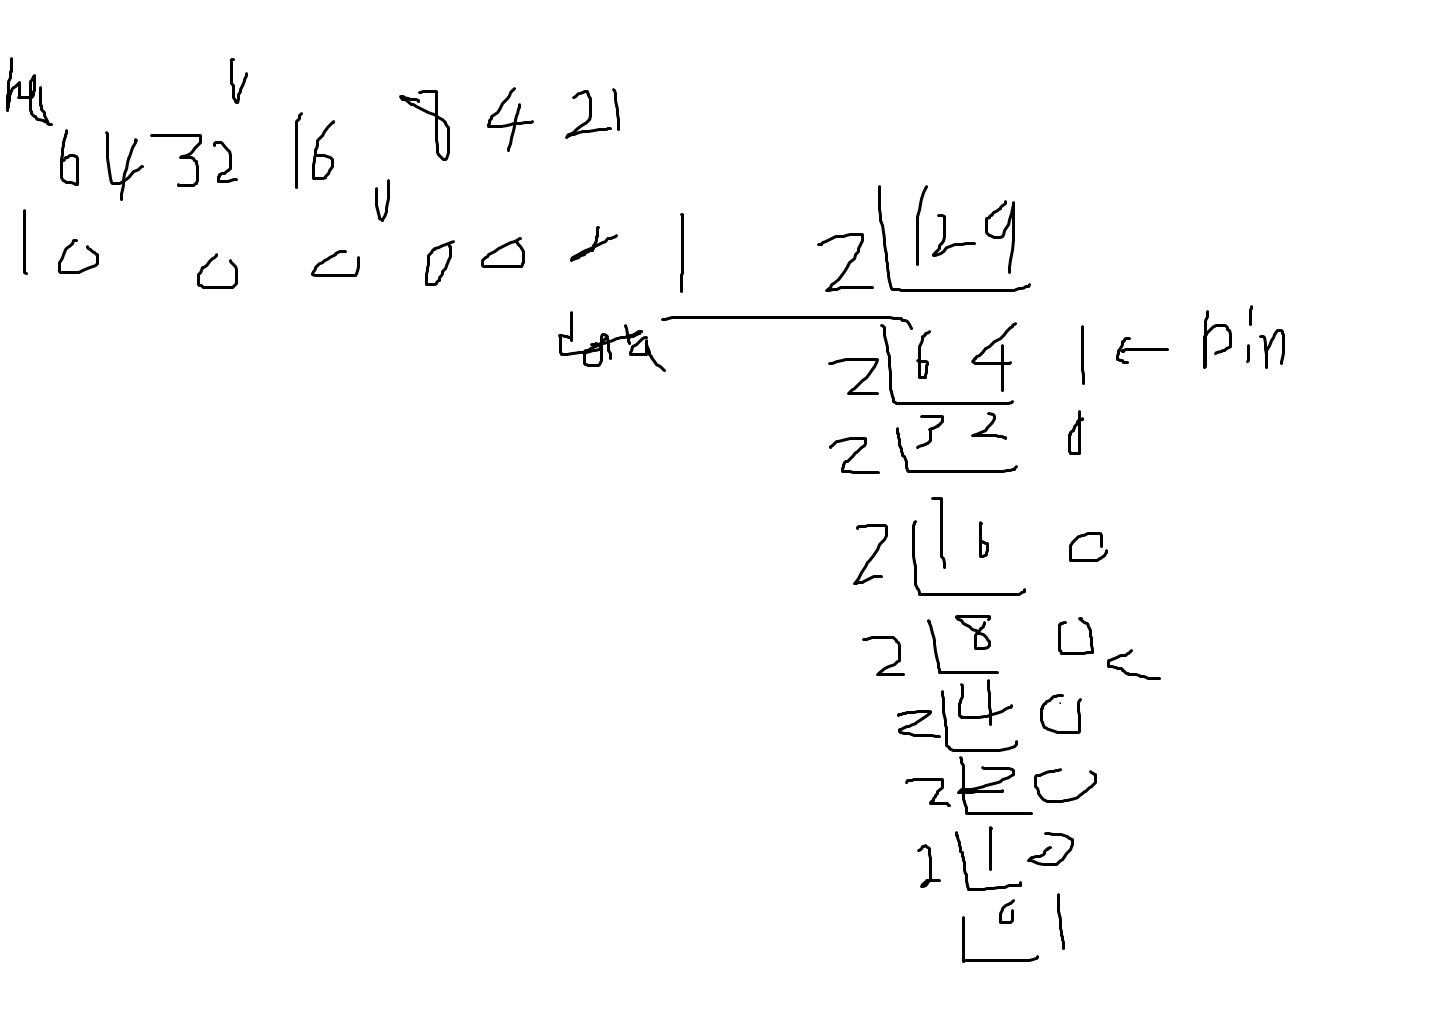 64 32 16 8 4 2 1
1 0 0 0 0 0 1
2 129
data
2 64 1 ← bin
2 32 0
2 16 0
2 8 0 <
2 4 0
2 2 0
2 1 0
0 1